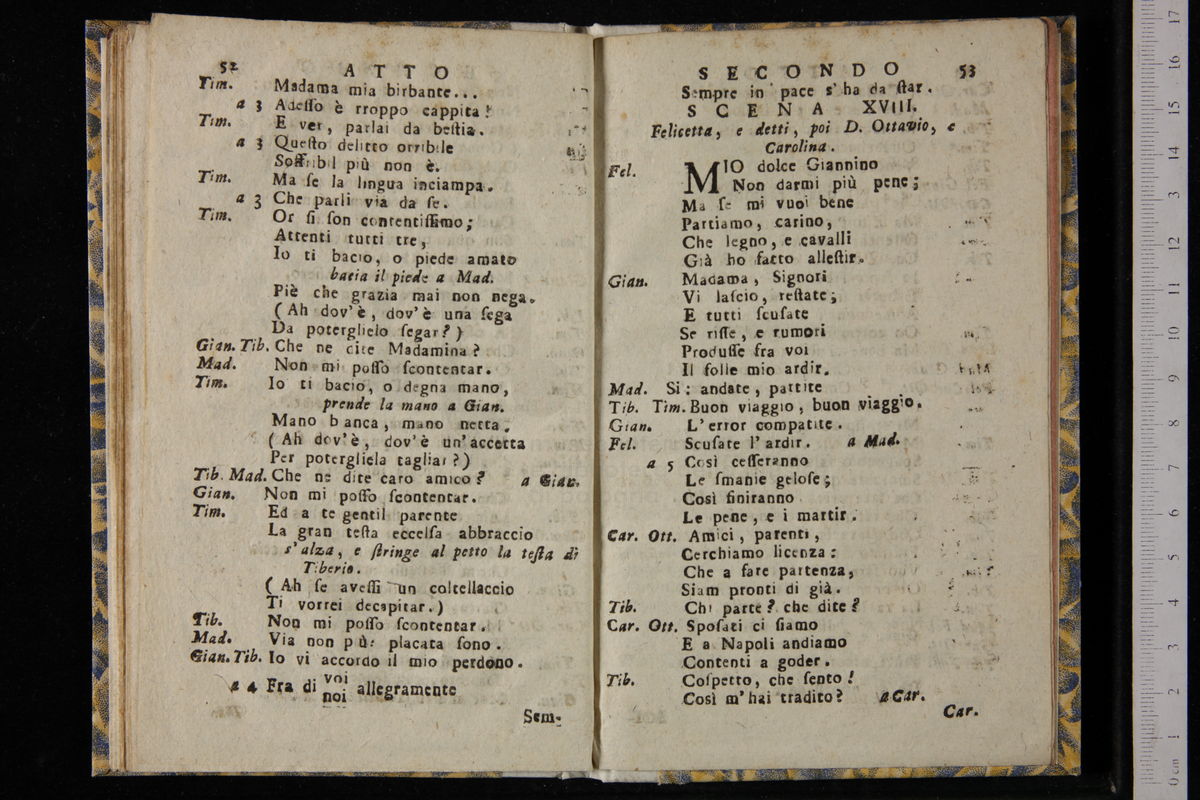 52 ATTO
Tim. Madama mia birbante...
a 3 Adeſſo è rroppo cappita!
Tim. E ver, parlai da beſtia.
a 3 Queſto delitto orribile
Soffribil più non è.
Tim. Ma ſe la lingua inciampa.
a 3 Che parli via da ſe.
Tim. Or ſi ſon contentiſſimo;
Attenti tutti tre,
Io ti bacio, o piede amato
bacia il piede a Mad.
Piè che grazia mai non nega.
(Ah dov'è, dov'è una ſega
Da poterglielo ſegar?)
Gian. Tib. Che ne dite Madamina?
Mad. Non mi poſſo ſcontentar.
Tim. Io ti bacio, o degna mano,
prende la mano a Gian.
Mano bianca, mano netta,
(Ah dov'è, dov'è un'accetta
Per potergliela tagliar?)
Tib. Mad. Che ne dite caro amico? a Gian.
Gian. Non mi poſſo ſcontentar.
Tim. Ed a te gentil parente
La gran teſta eccelſa abbraccio
s'alza, e ſtringe al petto la teſta di
Tiberio.
(Ah ſe aveſſi un coltellaccio
Ti vorrei decapitar.)
Tib. Non mi poſſo ſcontentar.
Mad. Via non più: placata ſono.
Gian. Tib. Io vi accordo il mio perdono.
a 4 Fra di voi noi allegramente
Sem-
SECONDO 53
Sempre in pace s'ha da ſtar.
SCENA XVIII.
Felicetta, e detti, poi D. Ottavio, e
Carolina.
Fel. MIO dolce Giannino
Non darmi più pene;
Ma ſe mi vuoi bene
Partiamo, carino,
Che legno, e cavalli
Già ho fatto alleſtir.
Gian. Madama, Signori
Vi laſcio, reſtate;
E tutti ſcuſate
Se riſſe, e rumori
Produſſe fra voi
Il folle mio ardir.
Mad. Si: andate, partite
Tib. Tim. Buon viaggio, buon viaggio.
Gian. L'error compatite.
Fel. Scuſate l'ardir. a Mad.
a 5 Così ceſſeranno
Le ſmanie geloſe;
Così finiranno
Le pene, e i martir.
Car. Ott. Amici, parenti,
Cerchiamo licenza:
Che a fare partenza,
Siam pronti di già.
Tib. Chi parte? che dite?
Car. Ott. Spoſati ci ſiamo
E a Napoli andiamo
Contenti a goder.
Tib. Coſpetto, che ſento!
Così m'hai tradito? a Car.
Car.
0 cm 1 2 3 4 5 6 7 8 9 10 11 12 13 14 15 16 17